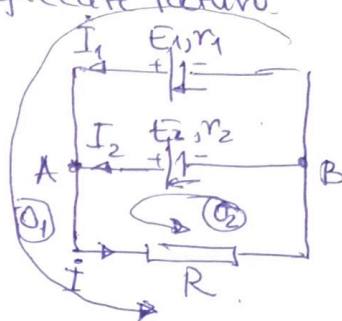 I₁ E₁,r₁
+ -
I₂ E₂,r₂
+ -
A B
O₁ O₂
I R